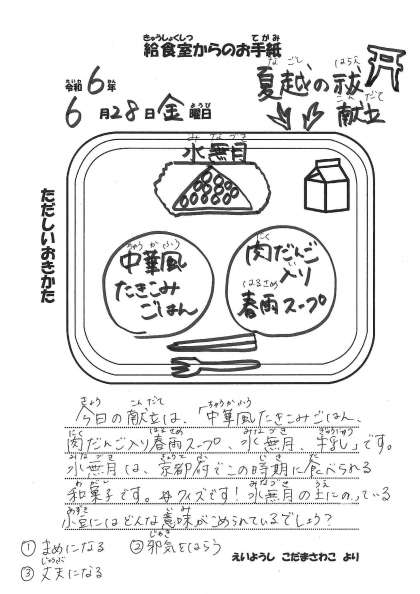 給食室からのお手紙
令和6年
6月28日金曜日
夏越の祓
献立
水無月
ただしいおきかた
中華風
たきこみ
ごはん
肉だんご
入り
春雨スープ
今日の献立は、「中華風たきこみごはん、
肉だんご入り春雨スープ、水無月、牛乳」です。
水無月は、京都府でこの時期に食べられる
和菓子です。クイズです!水無月の上にのっている
小豆にはどんな意味がこめられているでしょう?
①まめになる ②邪気をはらう
③丈夫になる
えいようし こだまさわこ より